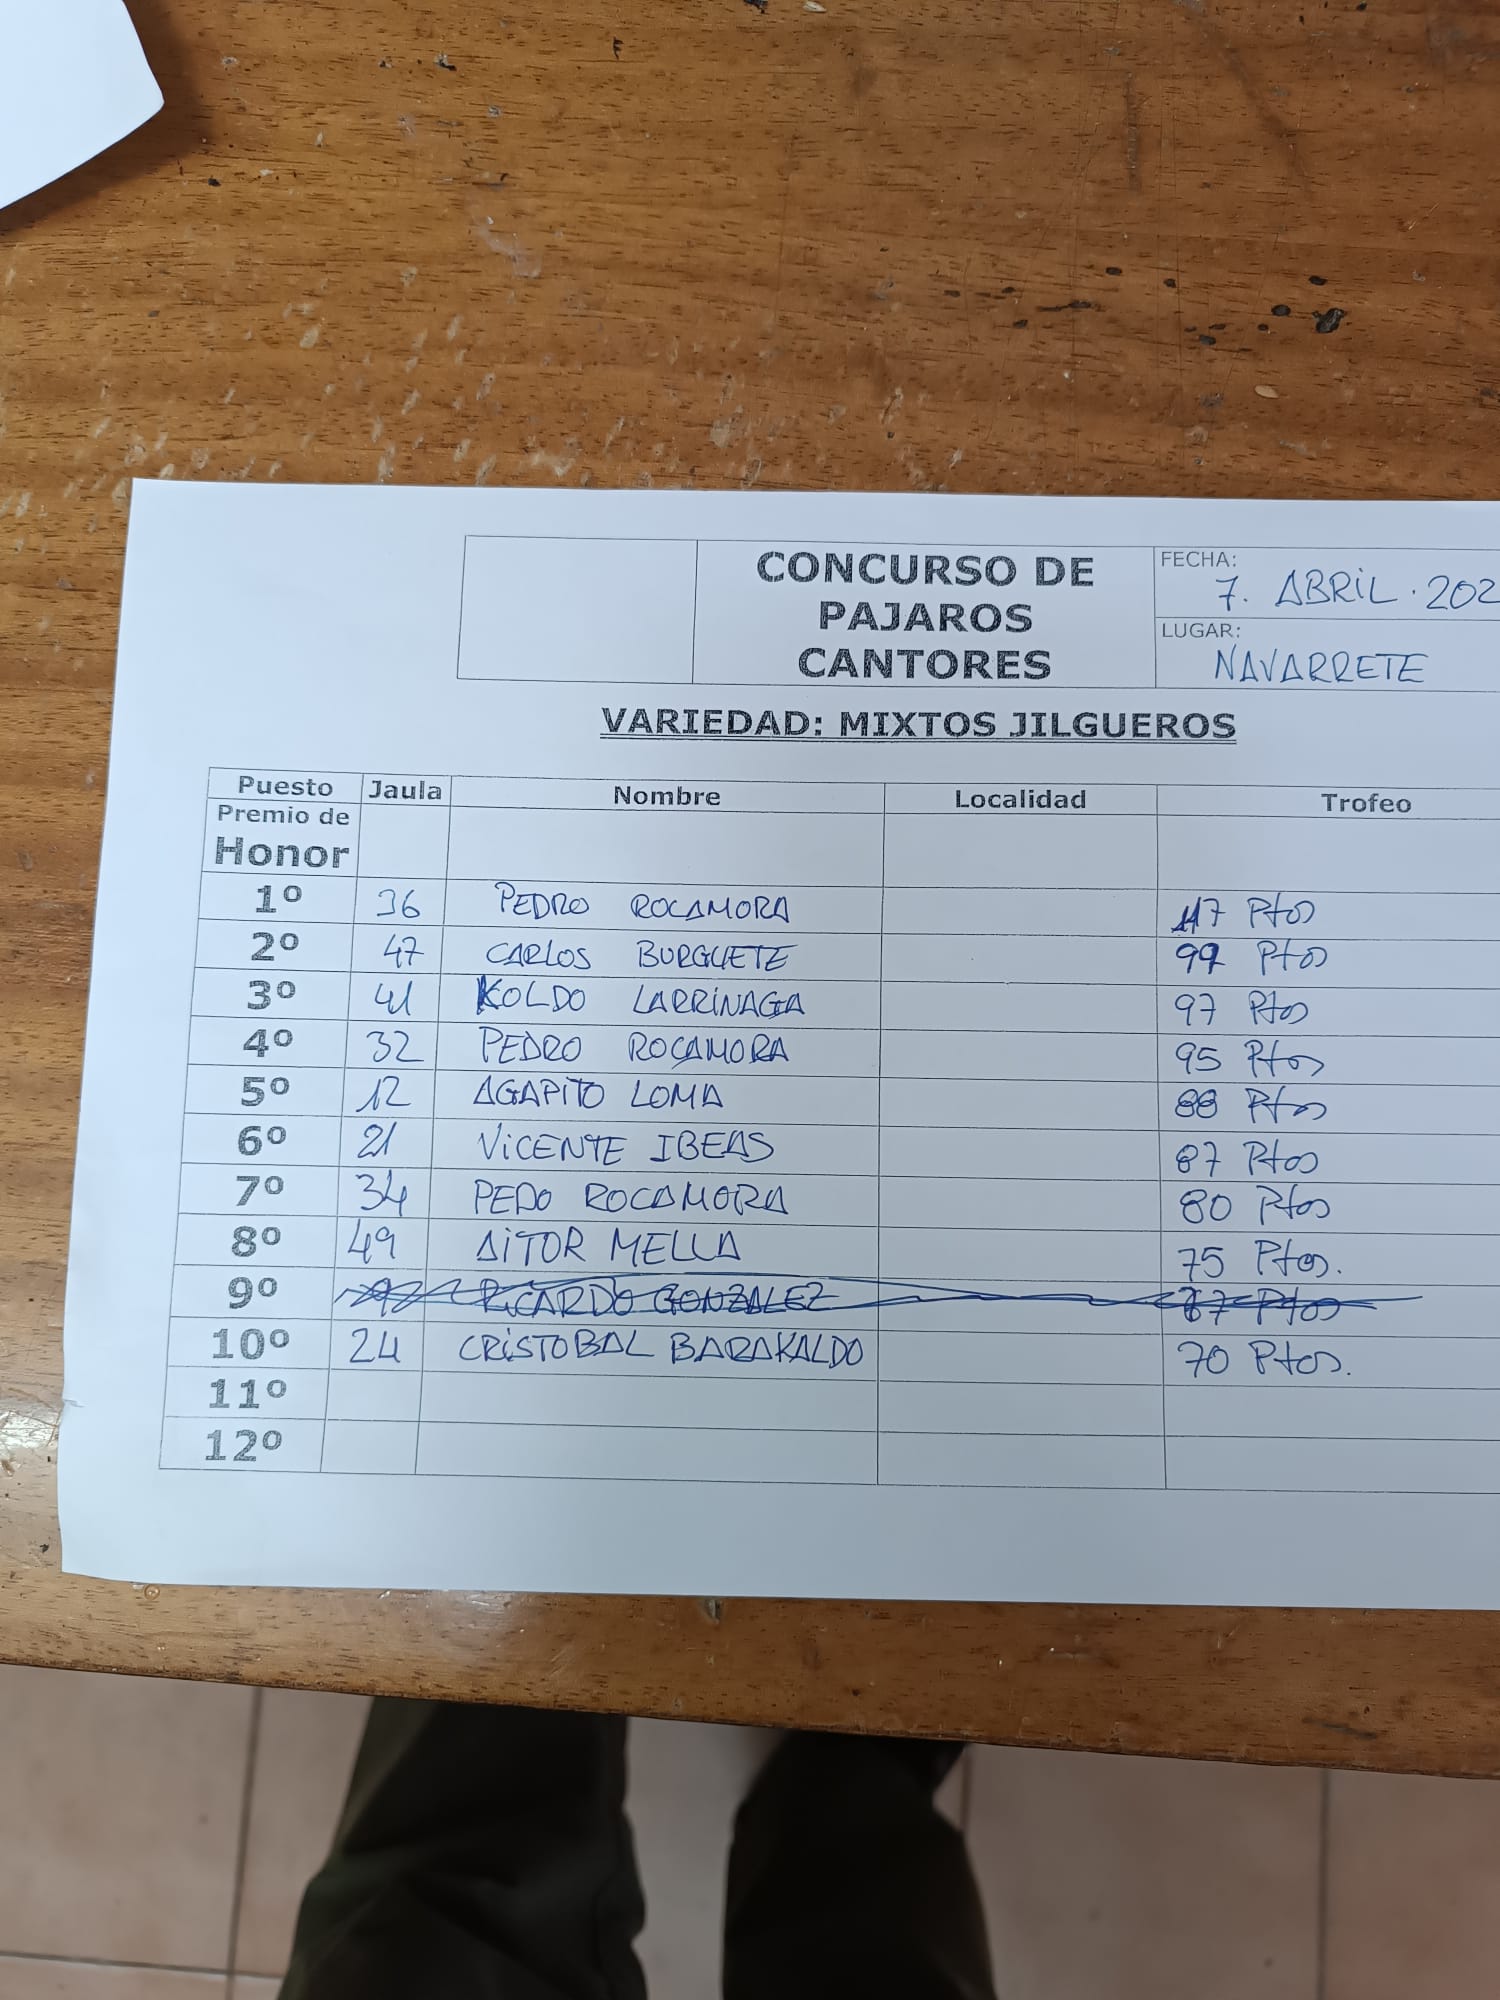 CONCURSO DE
PAJAROS
CANTORES
FECHA:
7. ABRIL. 202
LUGAR:
NAVARRETE
VARIEDAD: MIXTOS JILGUEROS
Puesto Jaula Nombre Localidad Trofeo
Premio de
Honor
1º 36 PEDRO ROCAMORA 117 Ptos
2º 47 CARLOS BURGUETE 99 Ptos
3º 41 KOLDO LARRINAGA 97 Ptos
4º 32 PEDRO ROCAMORA 95 Ptos
5º 12 AGAPITO LOMA 88 Ptos
6º 21 VICENTE IBEAS 87 Ptos
7º 34 PEDO ROCAMORA 80 Ptos
8º 49 AITOR MELLA 75 Ptos.
9º RICARDO GONZALEZ Ptos
10º 24 CRISTOBAL BARAKALDO 70 Ptos.
11º
12º